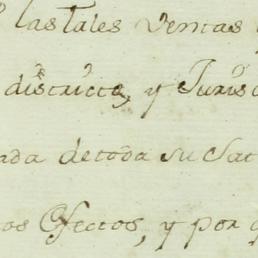 las Tales Ventas
districto, y Juris
ada de toda su Sat
os Efectos, y por q